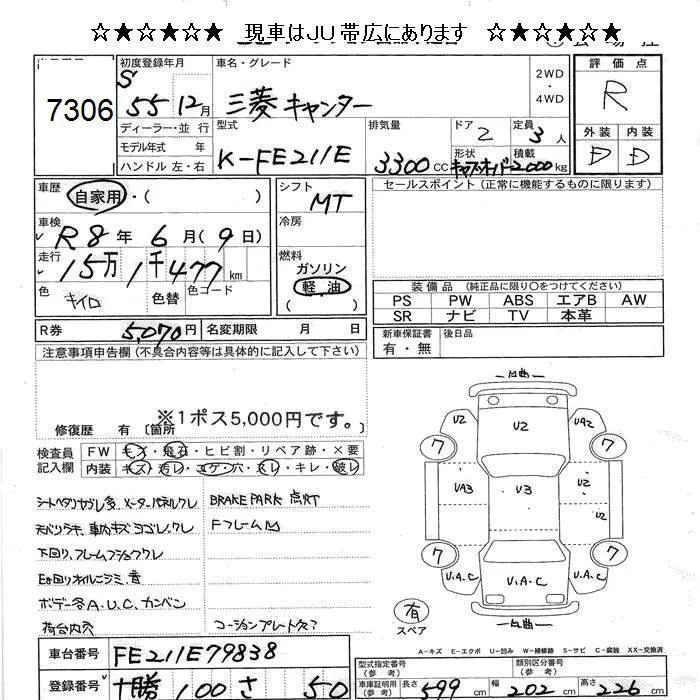 ☆★☆★☆★ 現車はJU帯広にあります ☆★☆★☆★
7306
初度登録年月
S 55 12月
ディーラー・並 行
モデル年式 年
ハンドル 左・右
車名・グレード
三菱 キャンター
2WD
・
4WD
型式
K-FE211E
排気量
3300 CC
ドア
2
定員
3人
形状
積載
2000kg
評価点
R
外装 内装
D D
車歴
自家用・( )
車検
R8年 6月(9日)
走行
15万1千477km
色
キイロ
色替
色コード
シフト
MT
冷房
燃料
ガソリン
軽・油
( )
セールスポイント (正常に機能するものに限ります)
装備品 (純正品に限り○をつけてください)
PS PW ABS エアB AW
SR ナビ TV 本革
新車保証書 後日品
有・無
R券 5,070円 名変期限 月 日
注意事項申告欄 (不具合内容等は具体的に記入して下さい)
※1ポス5,000円です。
修復歴 有 〔箇所
検査員
記入欄
FW キズ・飛石・ヒビ割・リペア跡・×要
内装 キズ・汚レ・コゲ・穴・スレ・キレ・破レ
シートヘタリヤブレ多 メーターパネルワレ
下回り、フレーム
ボデー各A.U.C. カンバン
荷台内穴
BRAKE PARK 点灯
Fフレーム
コーションプレート欠?
U2
UA2
UA2
7
7
UA3
V3
U2
U2
7
7
U.A.C
U.A.C
U.A.C
有
スペア
A-キズ E-エクボ U-凹み W-補修跡 S-サビ C-腐蝕 XX-交換済
車台番号 FE211E79838
登録番号 十勝 100 さ 50
型式指定番号
(参考)
類別区分番号
(参考)
車庫証明用
(参考)
長さ 599cm 幅 202cm 高さ 226cm